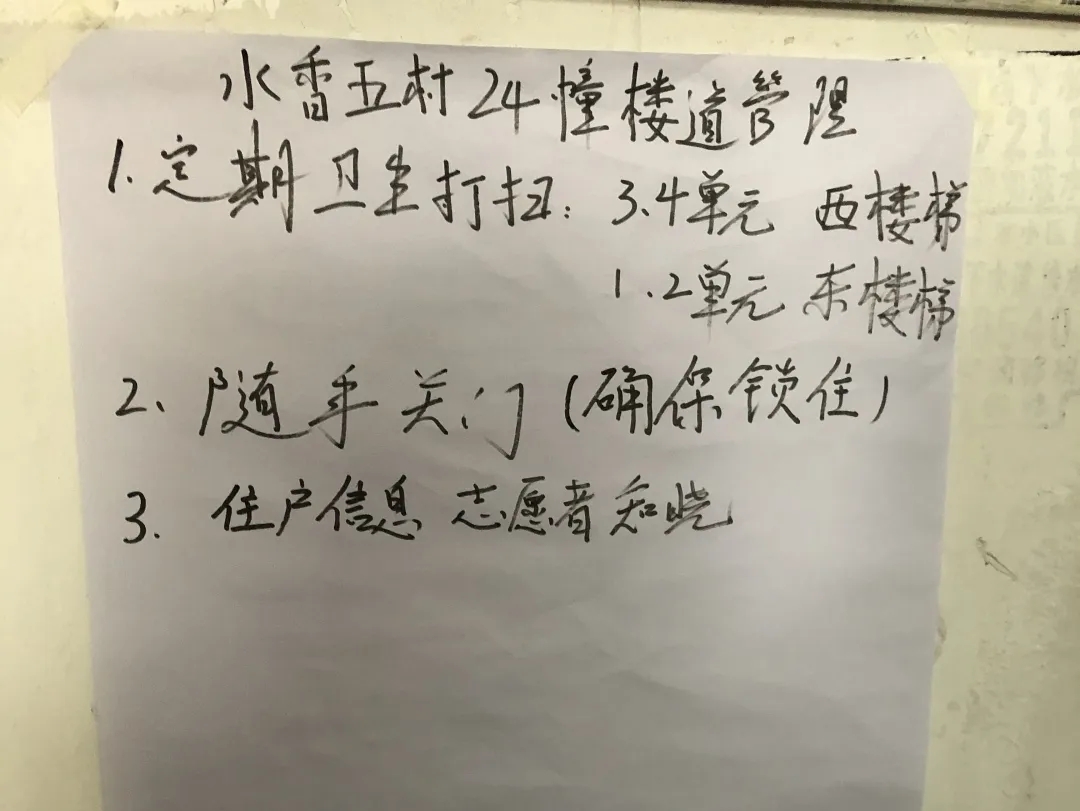 水香五村24幢楼道管理
1.定期卫生打扫：3.4单元 西楼梯
1.2单元 东楼梯
2、随手关门（确保锁住）
3. 住户信息 志愿者知晓